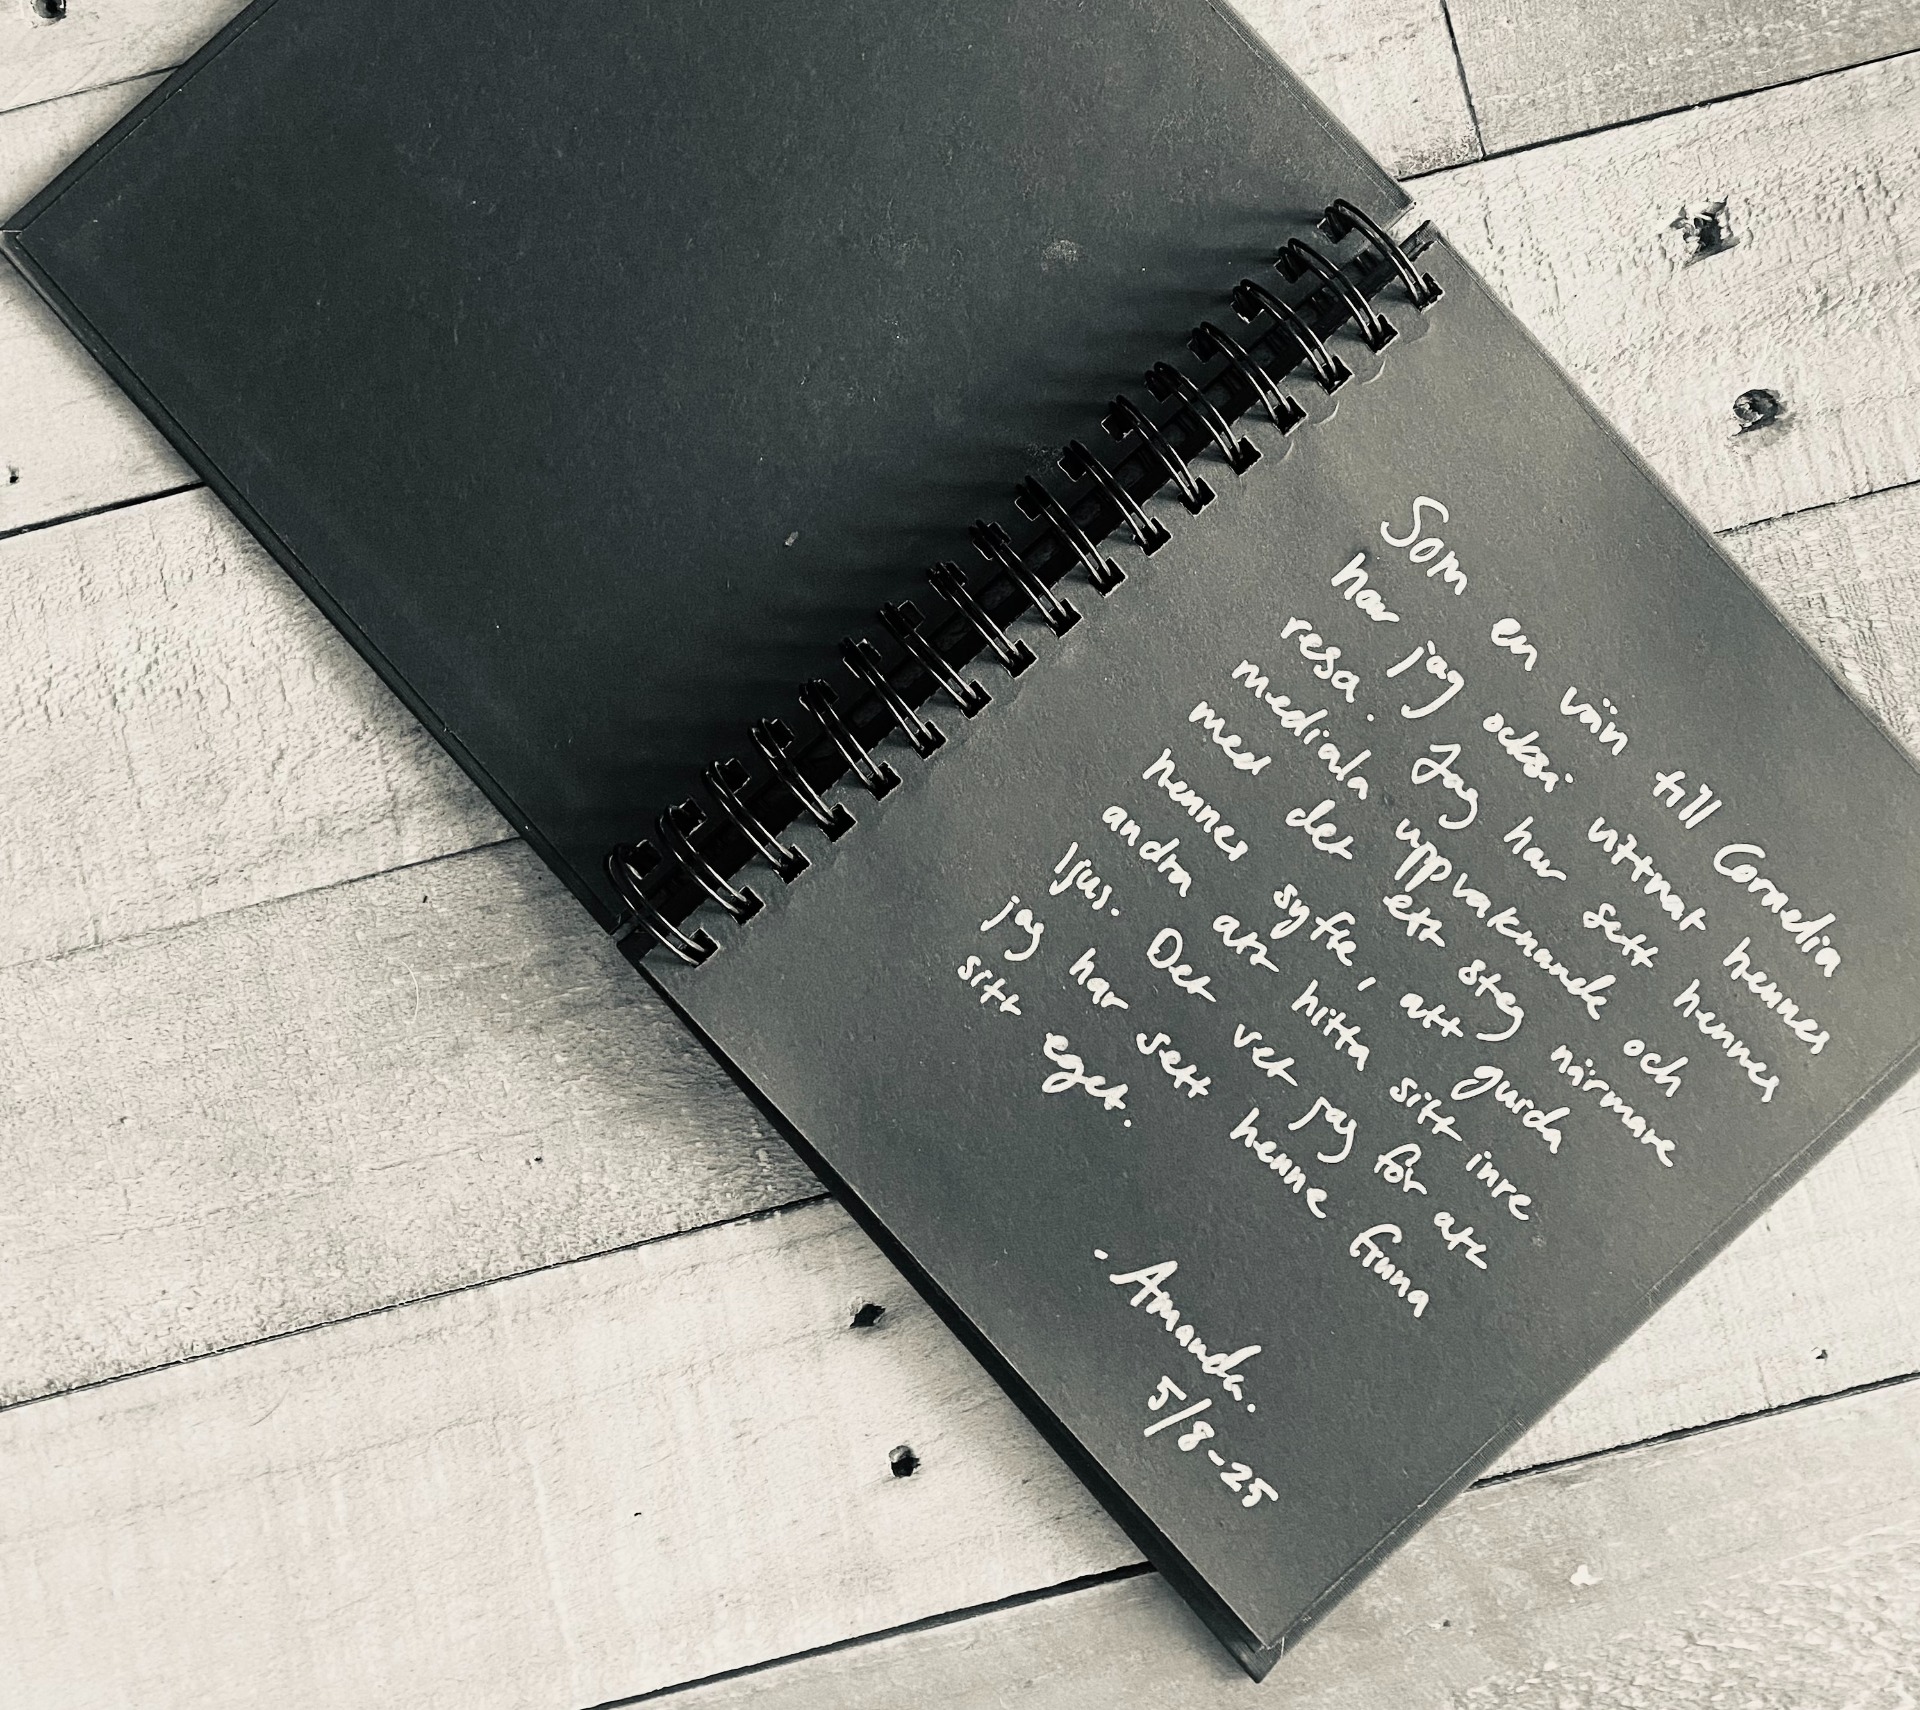 Som en vän till Cornelia
har jag också vittnat hennes
resa. Jag har sett hennes
mediala uppvaknande och
med det ett steg närmare
hennes syfte, att guida
andra att hitta sitt inre
ljus. Det vet jag för att
jag har sett henne finna
sitt eget.
- Amanda.
5/8-25